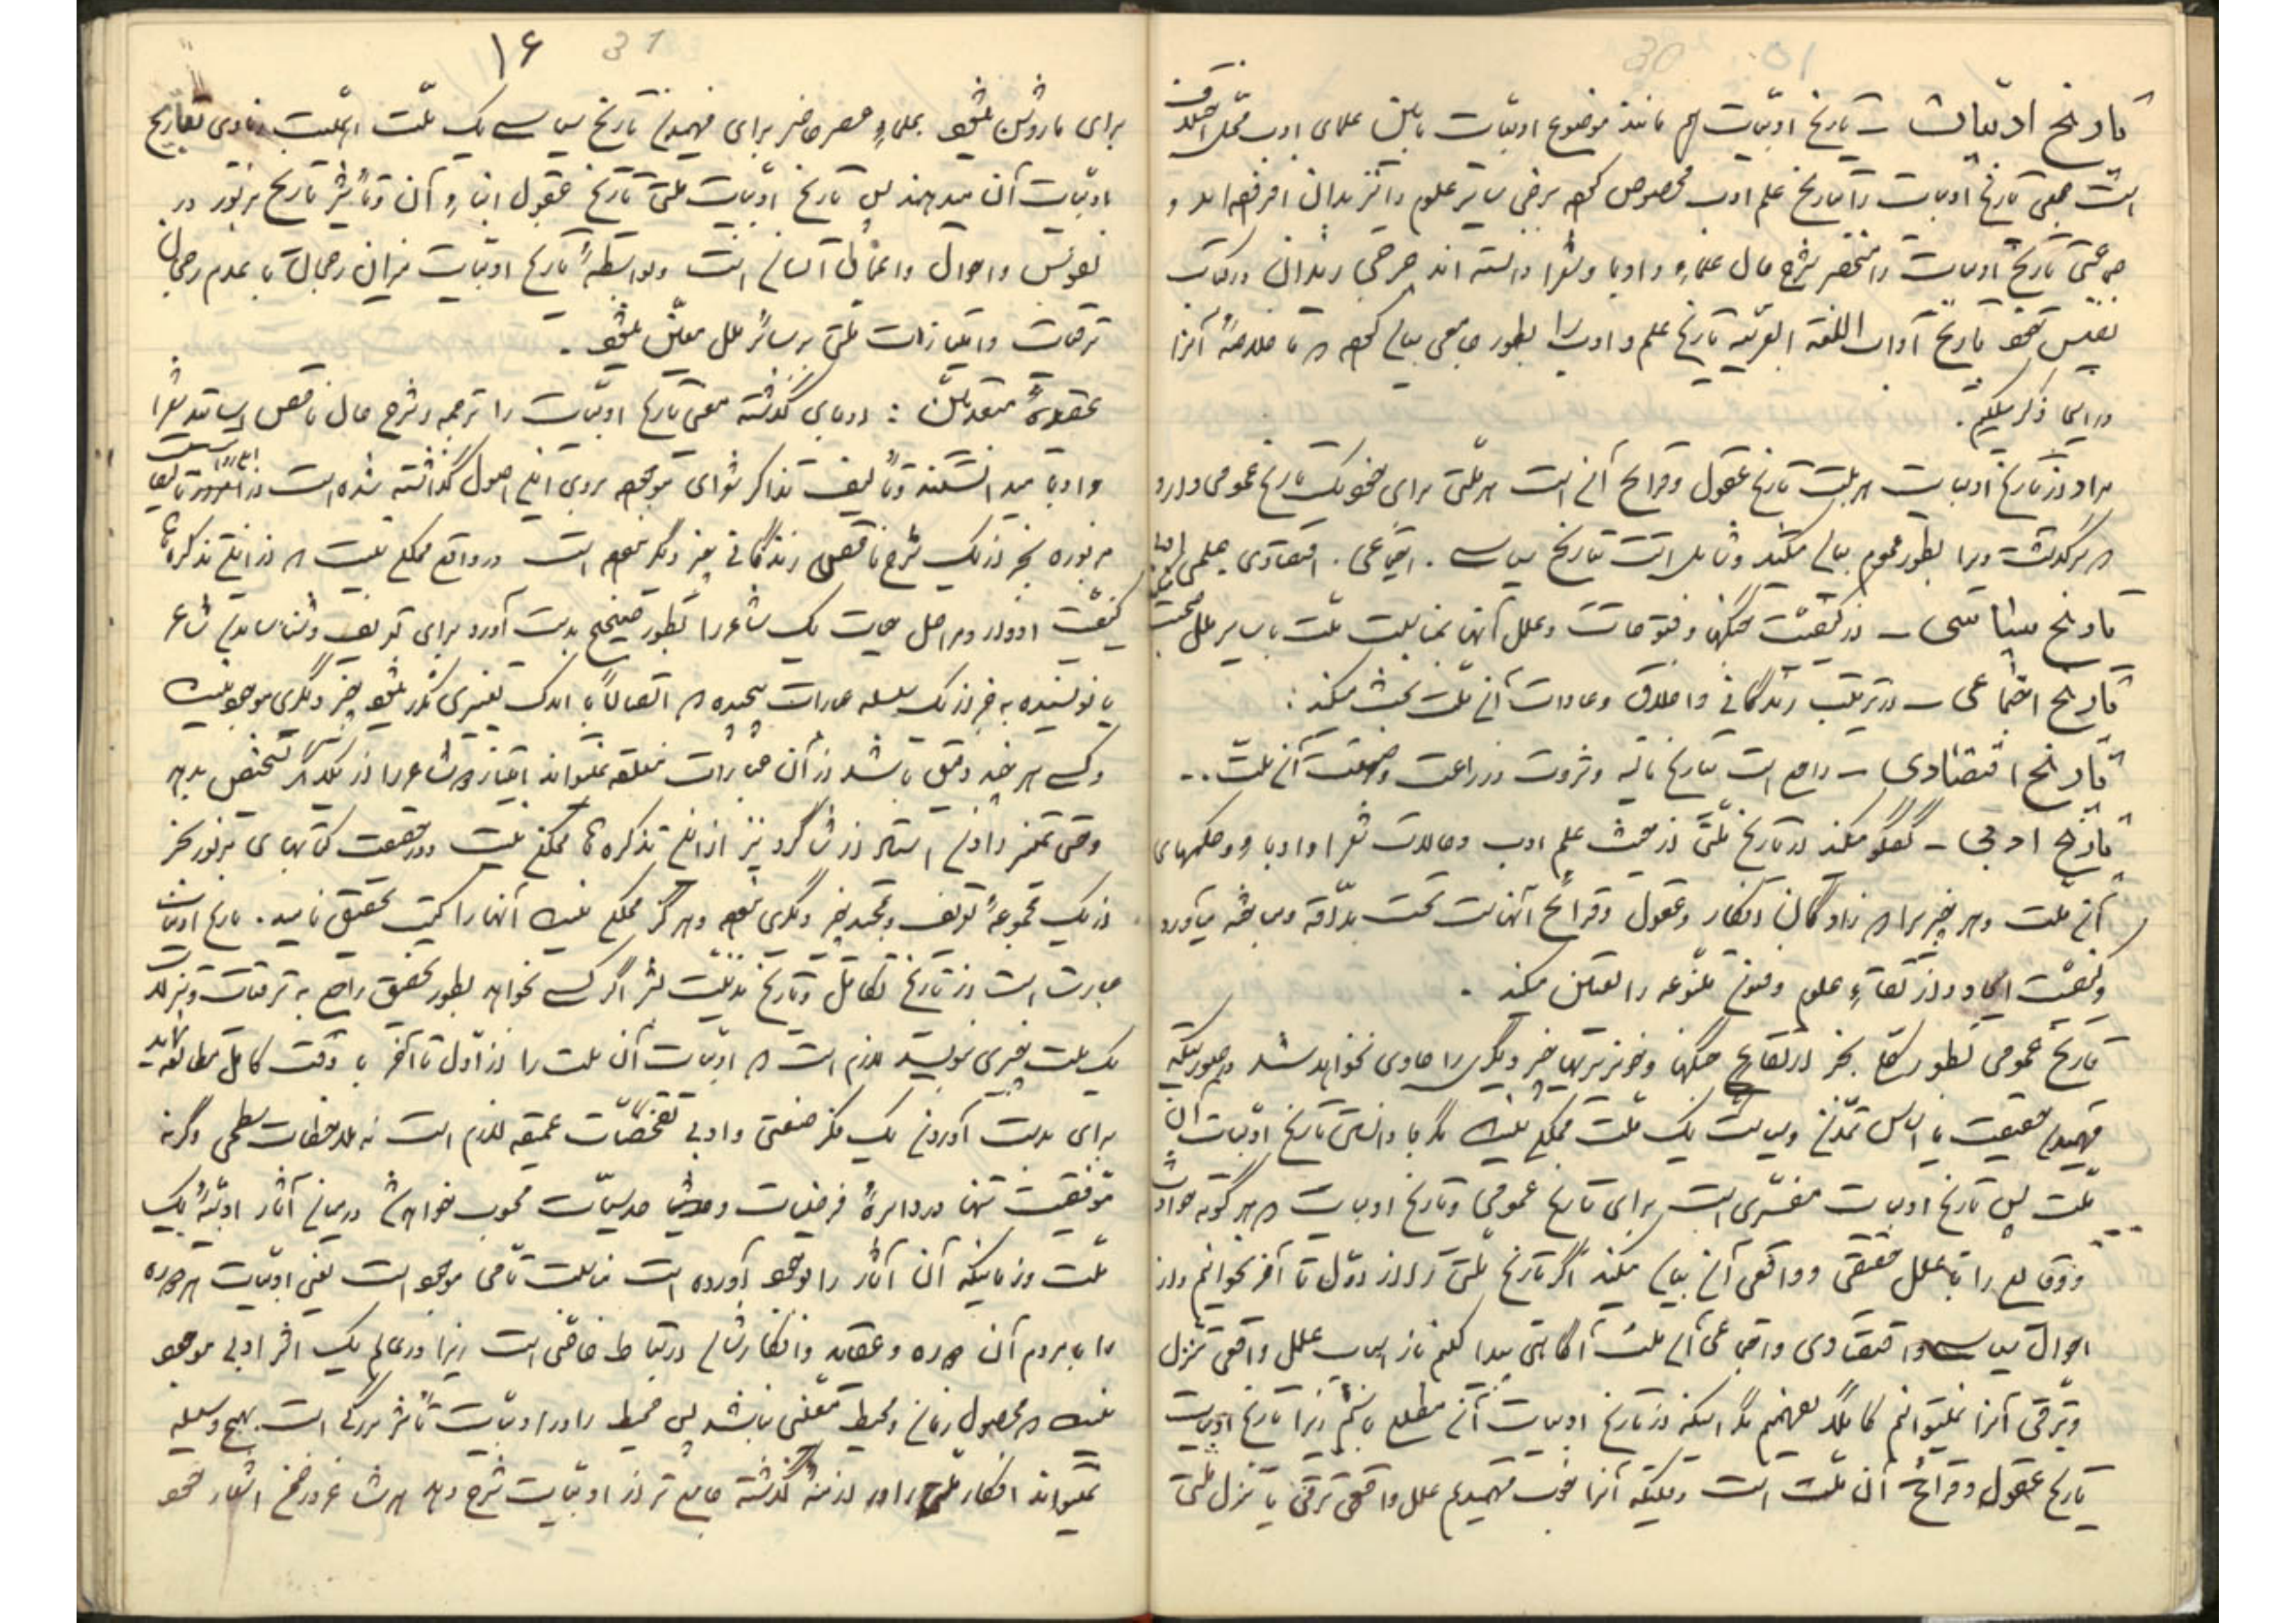 30 ۱۵
تاریخ ادبیات – تاریخ ادبیات هم مانند موضوع ادبیات مابین علمای ادب محل اختلاف
است جمعی تاریخ ادبیات را بتاریخ علم ادب مخصوص کرده برخی سایر علوم را نیز بدان افزوده‌اند و
جمعی تاریخ ادبیات را منحصر بشرح حال علماء و ادبا و شعرا دانسته‌اند جرجی زیدان در کتاب
نفیس خود تاریخ آداب اللغة العربیه تاریخ علم و ادب را بطور جامعی بیان کرده که ما خلاصهٔ آنرا
در اینجا ذکر میکنیم.
مراد از تاریخ ادبیات هر ملت تاریخ عقول و قرائح آن است هر ملتی برای خود یک تاریخ عمومی دارد
که سرگذشت ویرا بطور عموم بیان میکند و شامل است بتاریخ سیاسی. اجتماعی. اقتصادی علمی
تاریخ سیاسی – از کیفیت جنگها و فتوحات و علل آنها بمناسبت ملت با سایر ملل صحبت
تاریخ اجتماعی – در ترتیب زندگانی و اخلاق و عادات آن ملت بحث میکند:
تاریخ اقتصادی – راجع است بتاریخ مالیه و ثروت و زراعت و صنعت آن ملت..
تاریخ ادبی – گفتگو میکند در تاریخ ملتی از حیث علم ادب و حالات شعرا و ادبا و حکمهای
آن ملت و هر چیزیرا که زادگان افکار و عقول و قرائح آنهاست تحت مداقه و مباحثه میآورد
و کیفیت ایجاد و ارتقاء علوم و فنون متنوعه را تعیین میکند.
تاریخ عمومی بطور بجز از نتایج جنگها و خونریزیها چیز دیگری را حاوی نخواهد شد در صورتیکه
فهمیدن حقیقت یا اساس تمدن و سیاست یک ملت ممکن نیست مگر با دانستن تاریخ ادبیات آن
ملت پس تاریخ ادبیات مفسری است برای تاریخ عمومی و تاریخ ادبیات که هر گونه حوادث
و وقایع را با علل حقیقی و واقعی آن بیان میکند اگر تاریخ ملتی را از اول تا آخر بخوانیم و از
احوال سیاسی و اقتصادی و اجتماعی آن ملت آگاهی پیدا کنیم باز اسباب علل واقعی تنزل
و ترقی آنرا نمیتوانیم کاملاً بفهمیم مگر اینکه از تاریخ ادبیات آن مطلع باشیم زیرا تاریخ ادبیات
تاریخ عقول و قرائح آن ملت است وقتیکه آنرا خوب فهمیدیم علل واقعی ترقی یا تنزل ملتی
31 ۱۶
برای ما روشن میشود علماء عصر حاضر برای فهمیدن تاریخ سیاسی یک ملت اهمیت زیادی بتاریخ
ادبیات آن میدهند پس تاریخ ادبیات ملتی تاریخ عقول ابناء آن و تأثیر تاریخ مزبور در
نفوس و احوال و اعمال آنسان است و بواسطهٔ تاریخ ادبیات میزان رجحان یا عدم رجحان
ترقیات و امتیازات ملتی بر سائر ملل معین میشود.
عقیدهٔ متقدمین: ادبای گذشته معنی تاریخ ادبیات را ترجمه و شرح حال ناقص اساتید شعرا
و ادبا میدانستند و تألیف تذاکر شعرای موجوده بروی این اصول گذاشته شده است
مزبوره بجز از یک شرح ناقص زندگانی چیز دیگر نبوده است در واقع ممکن نیست که از این تذکره‌ها
کیفیت ادوار و مراحل حیات یک شاعر را بطور صحیح بدست آورد برای تعریف و شناساندن شاعر
یا نویسنده بغیر از یک سلسله عبارات پیچیده که اتصالاً با اندک تغییری تکرر میشود چیز دیگری موجود نیست
و کسی هر چند دقیق باشد از آن عبارات مغلقه نمیتواند امتیاز دو شاعر را از یکدیگر تشخیص بدهد
و حتی تمیز دادن استاد از شاگرد نیز از این تذکره‌ها ممکن نیست و در حقیقت کتابهای مزبور بجز
از یک مجموعهٔ تعریف و تمجید چیز دیگری نبوده و هرگز ممکن نیست آنها را کتب تحقیق نامید. تاریخ ادبیات
عبارت است از تاریخ تکامل و تاریخ مدنیت بشر اگر کسی بخواهد بطور تحقیق راجع به ترقیات و تنزلات
یک ملت چیزی بنویسد لازم است که ادبیات آن ملت را از اول تا آخر با دقت کامل مطالعه نماید
برای بدست آوردن یک فکر صنعتی و ادبی تفحصات عمیقه لازم است نه ملاحظات سطحی و گرنه
موفقیت تنها در دایرهٔ فرضیات و حدسیات محسوب خواهد شد در میان آثار ادبیهٔ یک
ملت و زمانیکه آن آثار را بوجود آورده است مناسبت تامی موجود است یعنی ادبیات هر دوره
را با مردم آن دوره و عقاید و افکارشان ارتباط خاصی است زیرا در عالم یک اثر ادبی موجود
نیست که محصول زمان و محیط معینی نباشد پس محیط را در ادبیات تأثیر بزرگی است بهیچ وسیله
نمیتواند افکار ملتی را در ازمنهٔ گذشته جامع‌تر از ادبیات شرح دهد هر شاعر در ضمن اشعار خود